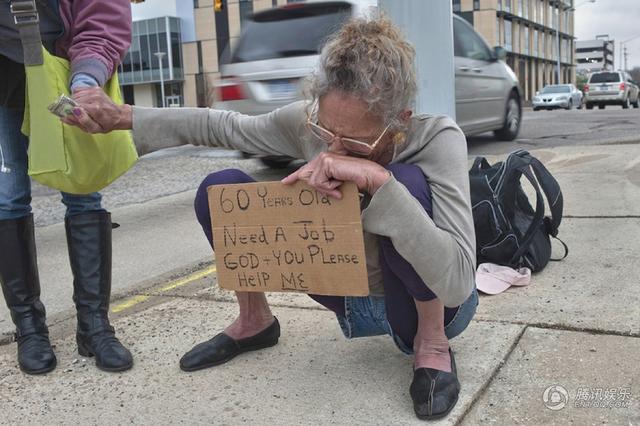 60 Years Old
Need A Job
GOD + You PLease
HeLP ME
腾讯娱乐
ENT.QQ.COM